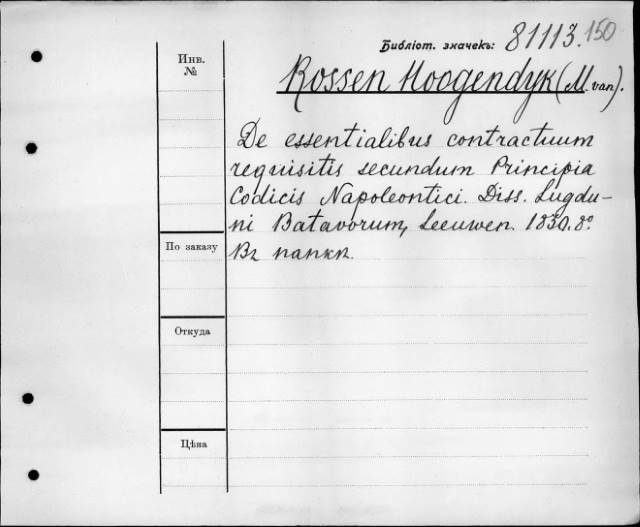 Библіот. значекъ: 81113. 150
Инв.
№
Rossen Hoogendyk (M. van).
De essentialibus contractuum
requisitis secundum Principia
Codicis Napoleontici. Diss. Lugdu-
ni Batavorum, Leeuwen. 1830. 8º
Въ папкѣ.
По заказу
Откуда
Цѣна